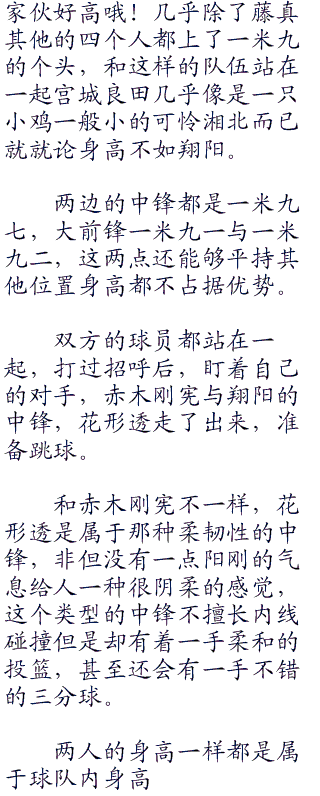 家伙好高哦！几乎除了藤真
其他的四个人都上了一米九
的个头，和这样的队伍站在
一起宫城良田几乎像是一只
小鸡一般小的可怜湘北而已
就就论身高不如翔阳。
两边的中锋都是一米九
七，大前锋一米九一与一米
九二，这两点还能够平持其
他位置身高都不占据优势。
双方的球员都站在一
起，打过招呼后，盯着自己
的对手，赤木刚宪与翔阳的
中锋，花形透走了出来，准
备跳球。
和赤木刚宪不一样，花
形透是属于那种柔韧性的中
锋，非但没有一点阳刚的气
息给人一种很阴柔的感觉，
这个类型的中锋不擅长内线
碰撞但是却有着一手柔和的
投篮，甚至还会有一手不错
的三分球。
两人的身高一样都是属
于球队内身高